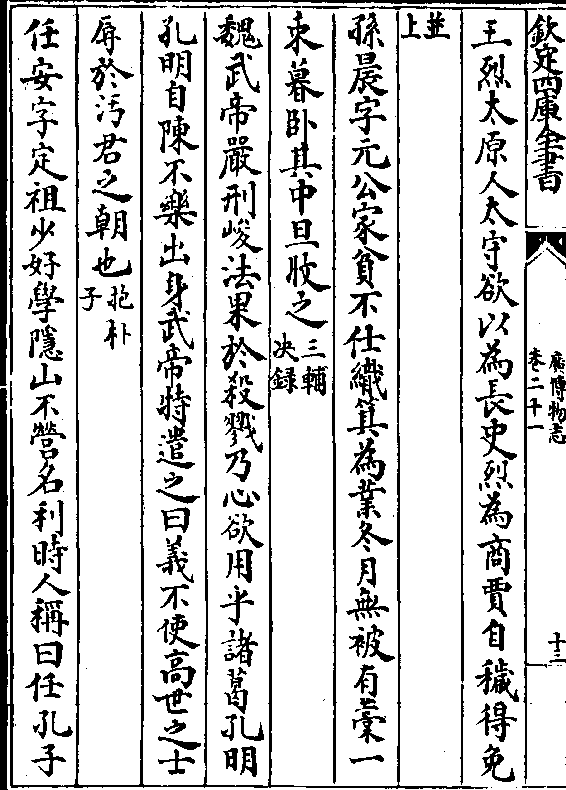 欽定四庫全書
廣博物志
卷二十一
十三
王烈太原人太守欲以為長史烈為商賈自穢得免
並
上
孫晨字元公家貧不仕織箕為業冬月無被有藁一
束暮卧其中旦收之三輔
决録
魏武帝嚴刑峻法果於殺戮乃心欲用乎諸葛孔明
孔明自陳不樂出身武帝特遣之曰義不使高世之士
辱於汚君之朝也抱朴
子
任安字定祖少好學隱山不營名利時人稱曰任孔子